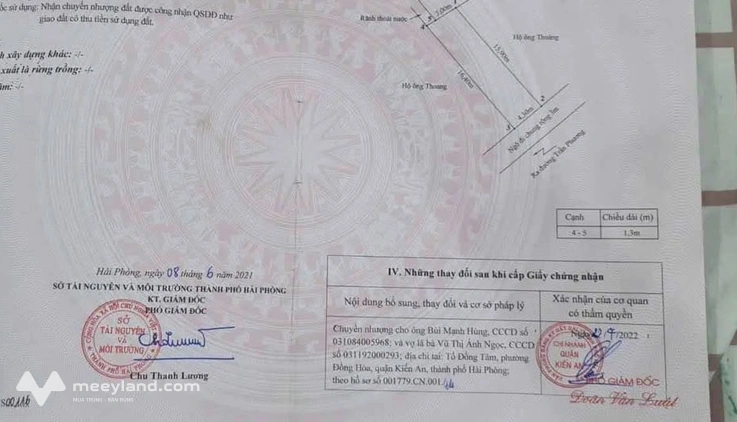 ốc sử dụng: Nhận chuyển nhượng đất được công nhận QSDĐ như
giao đất có thu tiền sử dụng đất.
h xây dựng khác: -/-
xuất là rừng trồng: -/-
ăm: -/-
Rãnh thoát nước
5
4
2,00m
Hộ ông Thoàng
15,90m
Hộ ông Thoang
16,40m
2
3
4,30m
Ngõ đi chung rộng 3m
Ra đường Trần Phương
Cạnh
Chiều dài (m)
4 - 5
1,3m
Hải Phòng, ngày 08 tháng 6 năm 2021
SỞ TÀI NGUYÊN VÀ MÔI TRƯỜNG THÀNH PHỐ HẢI PHÒNG
KT. GIÁM ĐỐC
PHÓ GIÁM ĐỐC
SỞ
TÀI NGUYÊN
VÀ
MÔI TRƯỜNG
Chu Thanh Lương
IV. Những thay đổi sau khi cấp Giấy chứng nhận
Nội dung bổ sung, thay đổi và cơ sở pháp lý
Xác nhận của cơ quan
có thẩm quyền
Chuyển nhượng cho ông Bùi Mạnh Hùng, CCCD số
031084005968; và vợ là bà Vũ Thị Ánh Ngọc, CCCD
số 031192000293; địa chỉ tại: Tổ Đồng Tâm, phường
Đồng Hòa, quận Kiến An, thành phố Hải Phòng;
theo hồ sơ số 001779.CN.001
2022
CHI NHÁNH
QUẬN
KIẾN AN
PHÓ GIÁM ĐỐC
Đoàn Văn Luật
meeyland.com
MUA TRÚNG - BÁN ĐÚNG